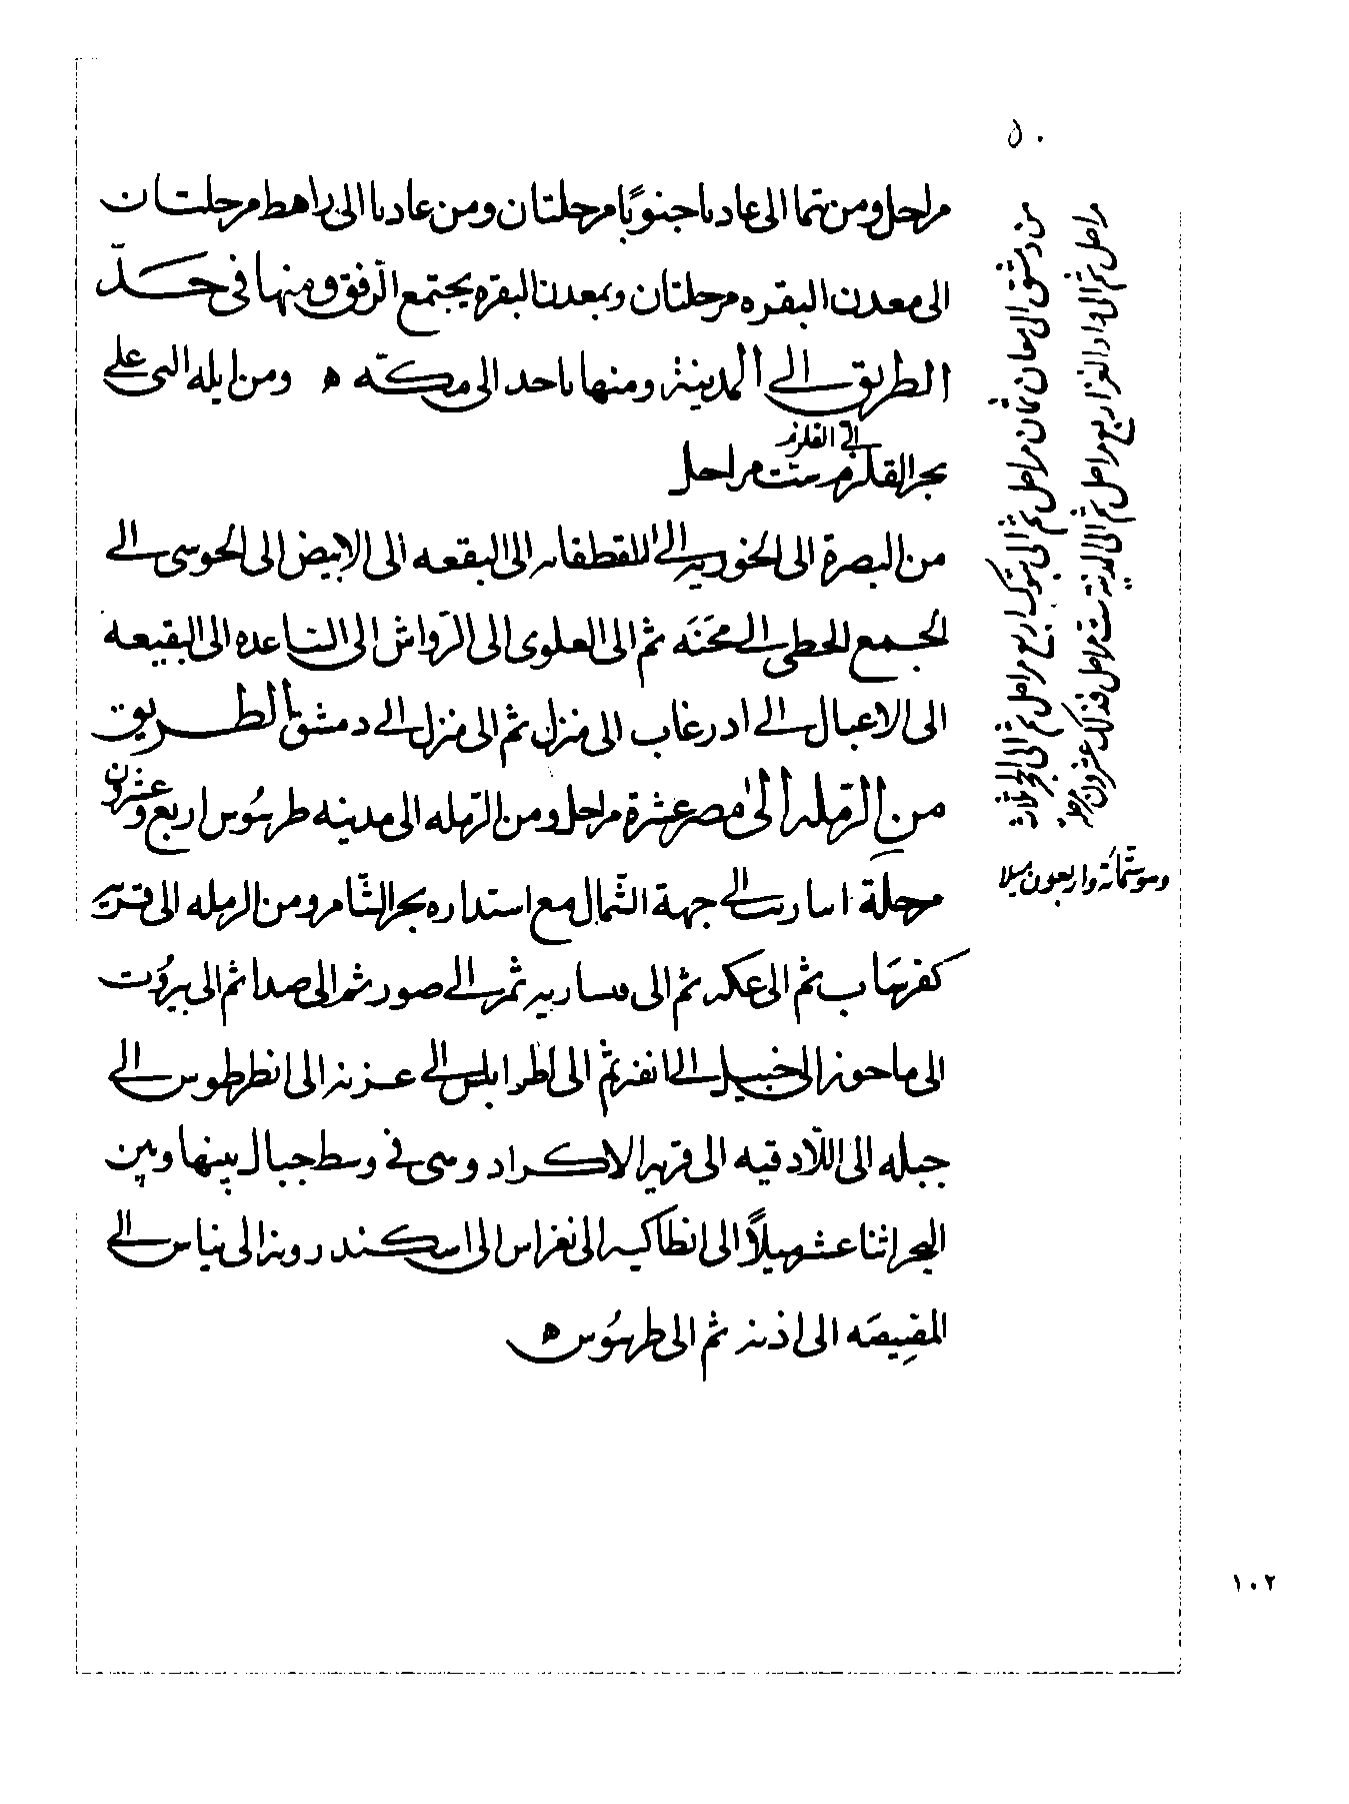 ٥٠
مراحل ومن تيما الى عاديا جنوبًا مرحلتان ومن عاديا الى راهط مرحلتان
الى معدن البقره مرحلتان وبمعدن البقره يجتمع الرّفق ومنها فى حدّ
الطريق الى المدينة ومنها ياخذ الى مكّه ه ومن ايله التى على
بحر القلزم الى القلزم ستّ مراحل
من البصرة الى الى القطقطانه الى البقعه الى الابيض الى الحوسى الى
الجمع الى الحطى الى محَنَه ثم الى العلوى الى الرّواش الى الساعده الى البقيعه
الى الاعبال الى ادرعاب الى منزل ثم الى منزل الى دمشق الطريق
من الرّمله الى مصر عشرة مراحل ومن الرّمله الى مدينه طرسُوس اربع وعشرون
مرحلة الى جهة الشّمال مع استداره بحر الشّام ومن الرمله الى قرية
كفرسَاب ثم الى عكه ثم الى ثم الى صور ثم الى صدا ثم الى بيرُوت
الى ماحوز الى جبيل الى انفه ثم الى اطرابلس الى عزنه الى انطرطوس الى
جبله الى اللّادقيه الى قرية الاكراد وهى فى وسط جبال بينها وبين
البحر اثنا عشر ميلًا الى انطاكيه الى بغراس الى اسكندرونه الى بياس الى
المصّيصَه الى اذنه ثم الى طرسُوس ه
من دمشق الى معان ثمان مراحل ثم الى تبوك اربع مراحل ثم الى الحجر ثلاث
مراحل ثم الى واد القرا اربع مراحل ثم الى المدينة ست مراحل فذلك عشرون مرحلة
وهو ستّمائة واربعون ميلا
١٠٢